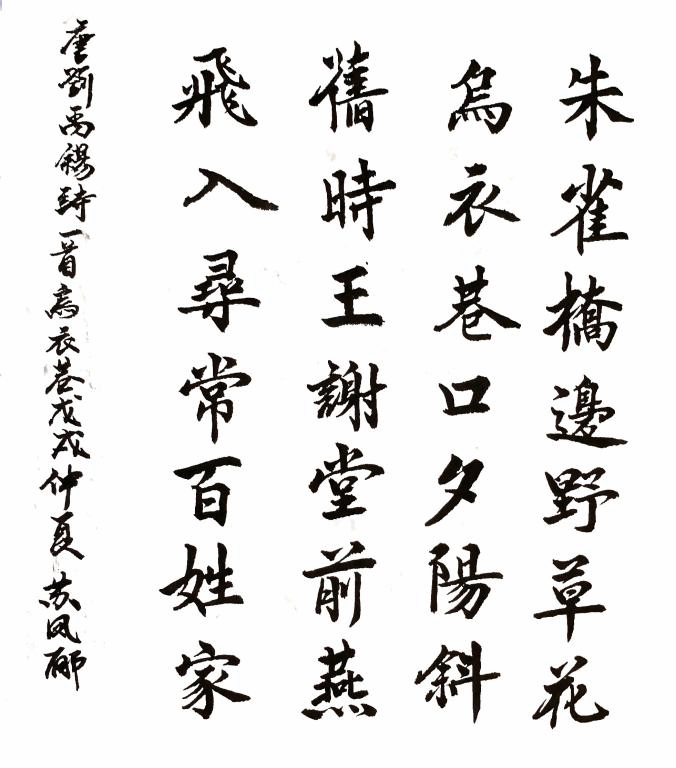 朱雀橋邊野草花
烏衣巷口夕陽斜
舊時王謝堂前燕
飛入尋常百姓家
唐劉禹錫詩一首烏衣巷戊戌仲夏 苏凤